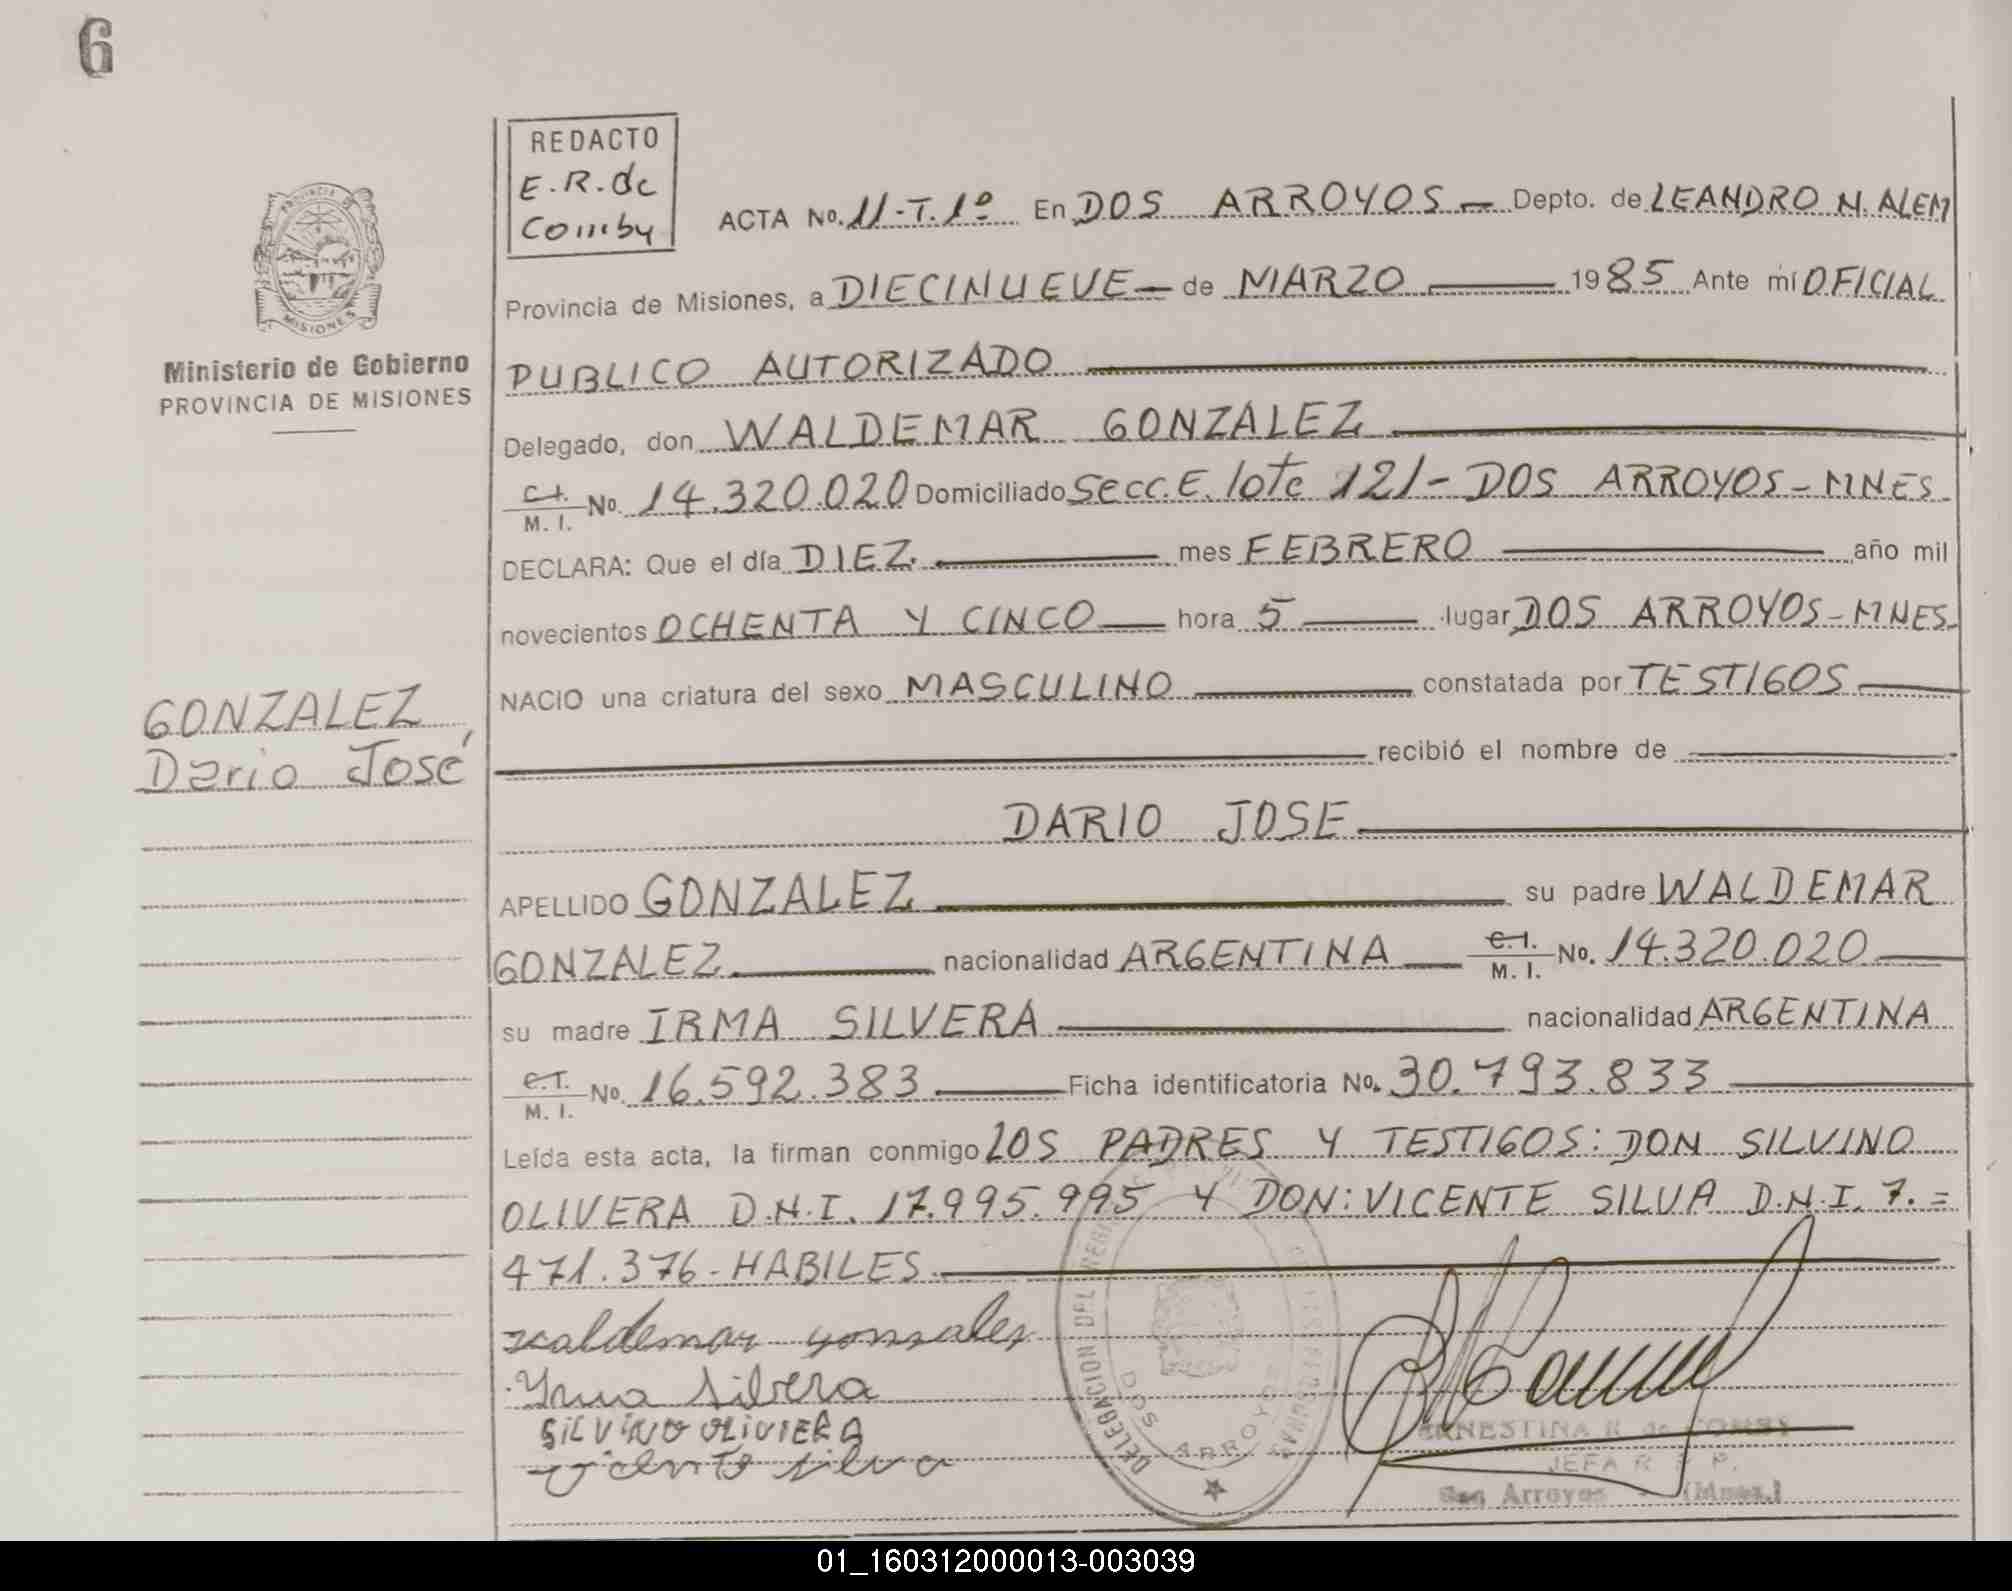 6
PROVINCIA DE
MISIONES
Ministerio de Gobierno
PROVINCIA DE MISIONES
GONZALEZ
Dario José
REDACTO
E.R.de
Comby
ACTA No. 11-T.1º En DOS ARROYOS — Depto. de LEANDRO N. ALEM
Provincia de Misiones, a DIECINUEVE — de MARZO — 1985 Ante mí OFICIAL
PUBLICO AUTORIZADO
Delegado, don WALDEMAR GONZALEZ
C.I. M. I. No. 14.320.020 Domiciliado Secc.E. lote 121- DOS ARROYOS - MNES.
DECLARA: Que el día DIEZ. mes FEBRERO año mil
novecientos OCHENTA Y CINCO — hora 5 — lugar DOS ARROYOS - MNES.
NACIO una criatura del sexo MASCULINO — constatada por TESTIGOS —
recibió el nombre de
DARIO JOSE
APELLIDO GONZALEZ su padre WALDEMAR
GONZALEZ nacionalidad ARGENTINA — C.I. M. I. No. 14.320.020
su madre IRMA SILVERA nacionalidad ARGENTINA
C.I. M. I. No. 16.592.383 — Ficha identificatoria No. 30.793.833
Leída esta acta, la firman conmigo LOS PADRES Y TESTIGOS: DON SILVINO
OLIVERA D.N.I. 17.995.995 Y DON: VICENTE SILVA D.N.I. 7.=
471.376 - HABILES.
Waldemar gonzalez
Yrma Silvera
SILVINO OLIVIERA
Vicente silva
DELEGACION DEL REGI
DOS ARROYOS
ERNESTINA R de COMBY
JEFA R P.
Dos Arroyos (Mnes.)
01_160312000013-003039